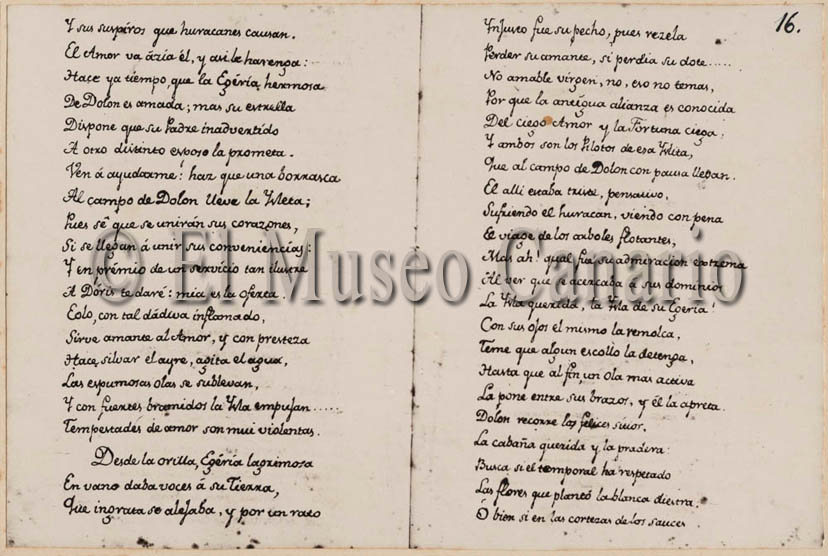 Y sus suspiros que huracanes causan.
El Amor va ázia él, y asi le harenga:
Hace ya tiempo, que la Egéria hermosa
De Dolon es amada; mas su estrella
Dispone que su Padre inadvertido
A otro distinto esposo la prometa.
Ven á ayudarme: haz que una borrasca
Al campo de Dolon lleve la Ysleta;
Pues sé que se unirán sus corazones,
Si se llegan á unir sus conveniencias:
Y en prémio de un servicio tan ilustre
A Dóris te daré: mia es la oferta.
Eolo, con tal dádiva inflamado,
Sirve amante al Amor, y con presteza
Hace silvar el ayre, agita el agua,
Las espumosas olas se sublevan,
Y con fuertes bramidos la Ysla empujan......
Tempestades de amor son mui violentas.
Desde la orilla, Egéria lagrimosa
En vano daba voces á su Tierra,
Que ingrata se alejaba, y por un rato
16.
Ynjusto fue su pecho, pues rezela
Perder su amante, si perdia su dote.....
No amable virgen, no, eso no temas,
Por que la antigua alianza es conocida
Del ciego Amor y la Fortuna ciega.
Y ambos son los Pilotos de esa Yslita,
Que al campo de Dolon con pausa llegan.
El alli estaba triste, pensativo,
Sufriendo el huracan, viendo con pena
El viage de los arboles flotantes,
Mas ah! qual fue su admiracion extrema
Al ver que se acercaba á sus dominios
La Ysla querida, la Ysla de su Egeria!
Con sus ojos el mismo la remolca,
Teme que algun escollo la detenga,
Hasta que al fin, un ola mas activa
La pone entre sus brazos, y él la apreta.
Dolon recorre los felices sitios.
La cabaña querida y la pradera:
Busca si el temporal ha respetado
Las flores que plantó la blanca diestra.
O bien si en las cortezas de los sauces
© El Museo Canario